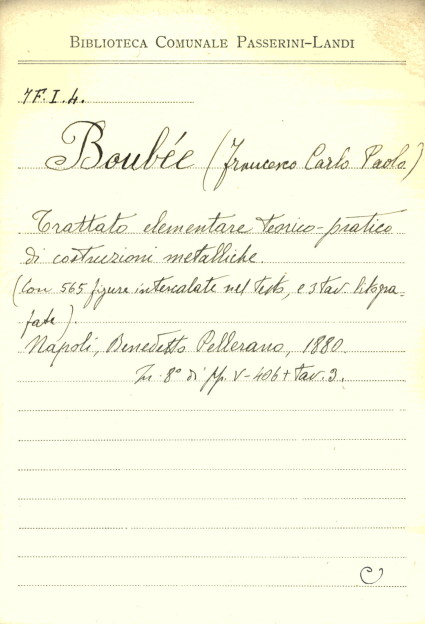 BIBLIOTECA COMUNALE PASSERINI-LANDI
7F.I.4.
Boubée (Francesco Carlo Paolo)
Trattato elementare teorico-pratico
di costruzioni metalliche
(Con 565 figure intercalate nel testo, e 3 tav. litogra-
fate).
Napoli, Benedetto Pellerano, 1880.
In 8° di pp. V-406 + tav. 3.